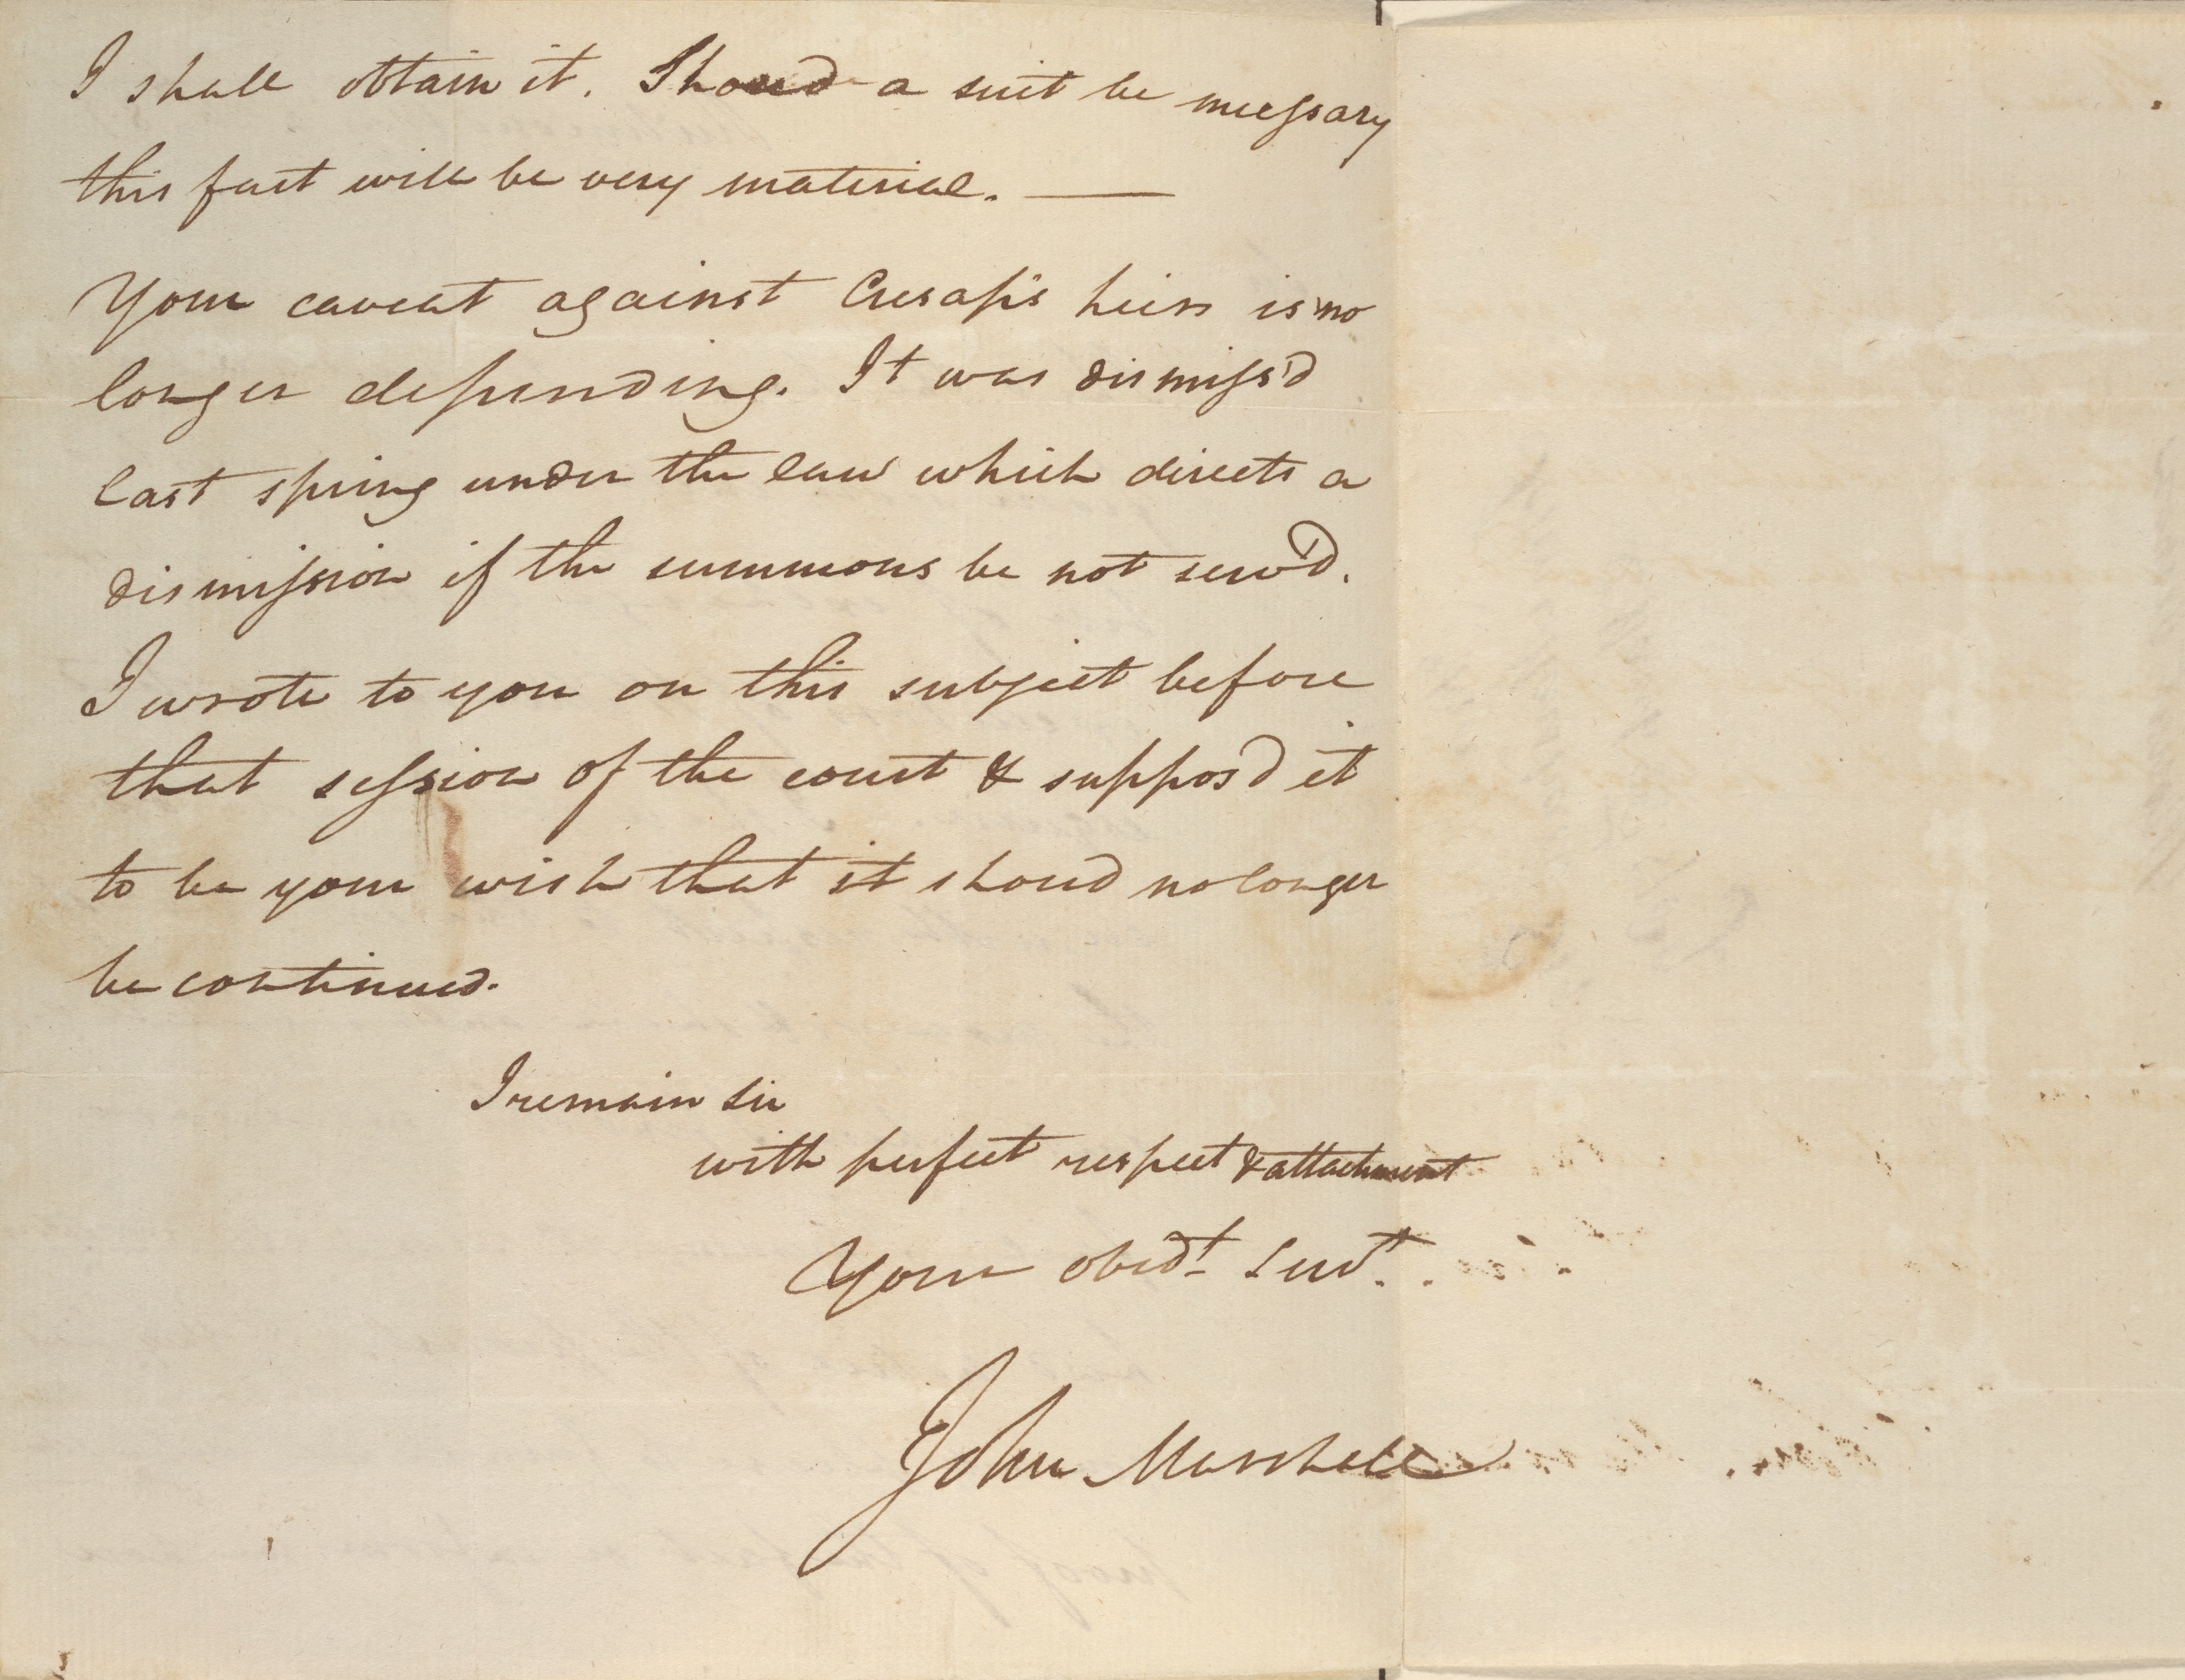 I shall obtain it. Shoud a suit be necessary
this fact will be very material. —
Your caveat against Cresap's heirs is no
longer depending. It was dismiss'd
last spring under the law which directs a
dismission if the summons be not serv'd.
I wrote to you on this subject before
that session of the court & suppos'd it
to be your wish that it shoud no longer
be continued.
I remain Sir
with perfect respect & attachment
Your obedt. Servt.
John Marshall